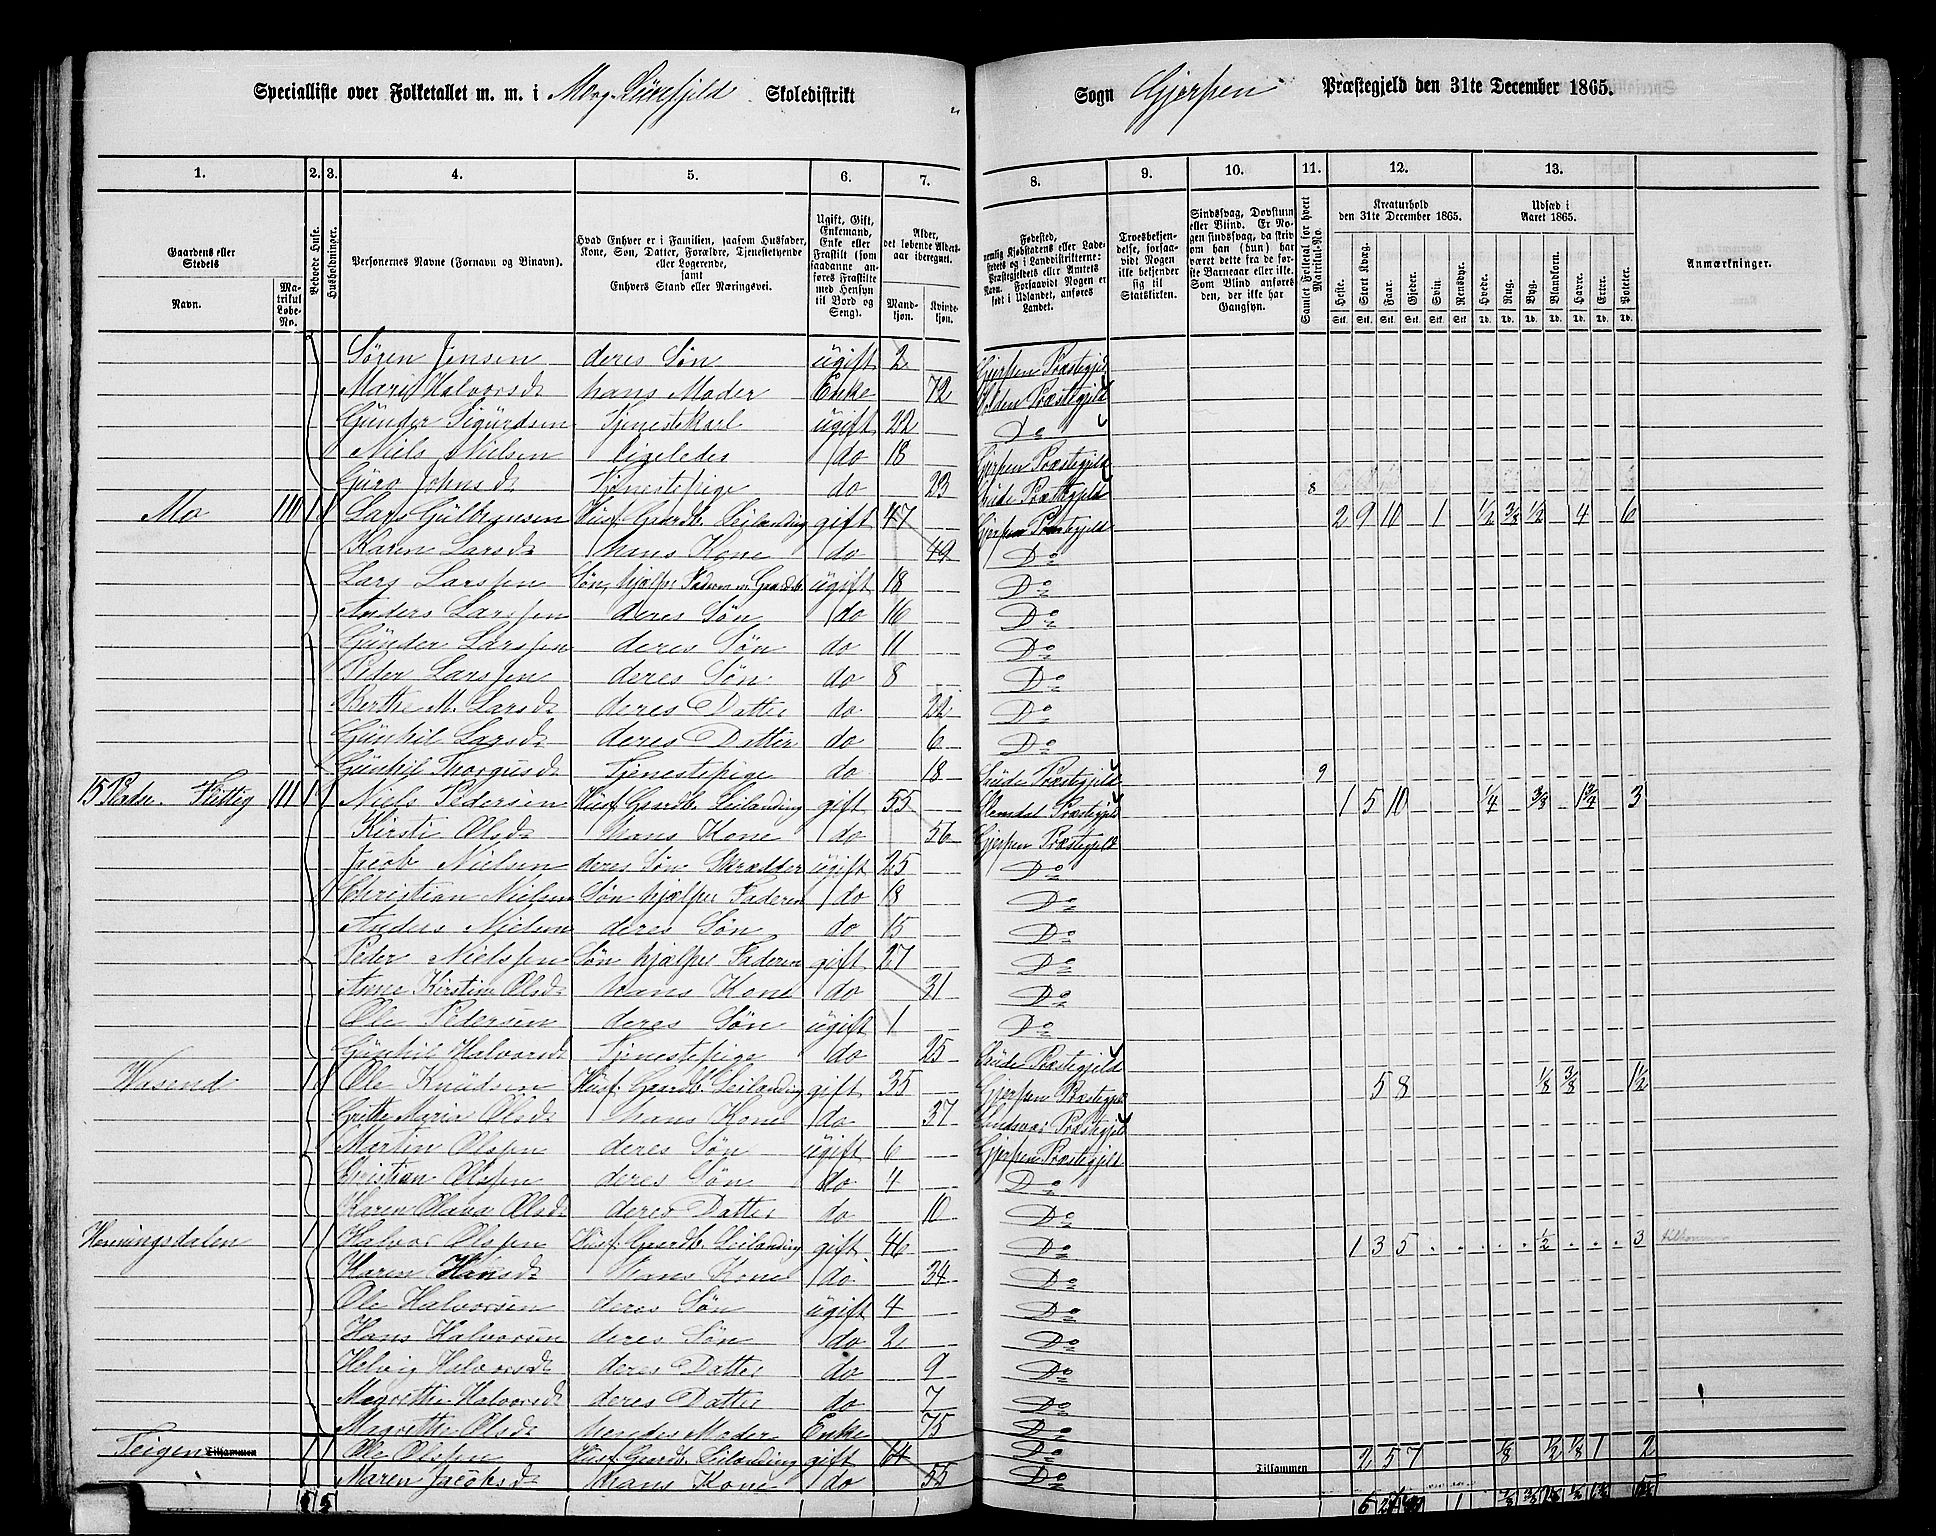 Specialliste over Folketallet m. m. i Skoledistrikt
Sogn Gjerpen Præstegjeld den 31te December 1865.
1. 2. 3. 4. 5. 6. 7. 8. 9. 10. 11. 12. 13.
Gaardens eller Stedets
Navn.
Matrikul Løbe-No.
Beboede Huse.
Husholdninger.
Personernes Navne (Fornavn og Binavn).
Hvad Enhver er i Familien, saasom Husfader, Kone, Søn, Datter, Forældre, Tjenestetyende eller Logerende, samt Enhvers Stand eller Næringsvei.
Ugift, Gift, Enkemand, Enke eller Fraskilt (som saadanne anføres Fraskilte med Hensyn til Bord og Seng).
Alder, det løbende Alders-aar iberegnet.
Mandkjøn.
Kvindekjøn.
Fødested,
Troesbekjendelse, forsaavidt Nogen ikke bekjender sig til Statskirken.
Sindssvag, Døvstum eller Blind. Er Nogen sindssvag, da skriv om han (hun) har været dette fra de første Barneaar eller ikke. Som Blind anføres den, der ikke har Gangsyn.
Samlet Folketal for hvert Matrikul-No.
Kreaturhold den 31te December 1865.
Heste. Stort Kvæg. Faar. Gjeder. Svin. Rensdyr.
Udsæd i Aaret 1865.
Hvede. Rug. Byg. Blandkorn. Havre. Erter. Poteter.
Anmærkninger.
Søren Jensen deres Søn ugift 2 Gjerpen Præstegjeld
Marie Halvorsd hans Moder Enke 72 Solden Præstegjeld
Gunder Sigurdsen Tjenestekarl ugift 22 Do
Niels Nielsen Ligeledes do 18 Gjerpen Præstegjeld
Guro Johnsd Tjenestepige do 23 Præstegjeld 8
Mo 110 1 1 Lars Gulbransen Husf. Gaardb. Leilænding gift 47 Gjerpen Præstegjeld 2 9 10 1 1/2 3/8 1/2 4 6
Karen Larsd hans Kone do 49 Do
Lars Larssen Søn, hjælper Faderen m Gaardsb. ugift 18 Do
Anders Larssen deres Søn do 16 Do
Gunder Larssen deres Søn do 11 Do
Peder Larssen deres Søn do 8 Do
Berthe M. Larsd deres Datter do 22 Do
Gunhil Larsd deres Datter do 6 Do
Gunhil Thorgusd Tjenestepige do 18 Præstegjeld 9
111 1 1 Niels Pedersen Husf. Gaardb. Leilænding gift 55 Slemdal Præstegjeld 1 5 10 1/4 3/8 1 3/4 3
Kirsti Olsd hans Kone do 56 Gjerpen Præstegjeld
Jacob Nielsen deres Søn Skrædder ugift 25 Do
Christian Nielsen Søn hjælper Faderen do 18 Do
Anders Nielsen deres Søn do 15 Do
Peder Nielssen Søn hjælper Faderen gift 27 Do
Anne Kirstine Olsd hans Kone do 31 Do
Ole Pedersen deres Søn ugift 1 Do
Gunhil Halvorsd Tjenestepige do 25 Præstegjeld
Wasend 1 1 Ole Knudsen Husf. Gaardb. Leilænding gift 35 Gjerpen Præstegjeld 5 8 1/8 3/8 1 1/2
Grethe Maria Olsd hans Kone do 37 Præstegjeld
Martin Olssen deres Søn ugift 6 Gjerpen Præstegjeld
Christian Olssen deres Søn do 4 Do
Karen Olava Olsd deres Datter do 10 Do
Henningsdalen 1 1 Halvor Olssen Husf. Gaardb. Leilænding gift 46 Do 1 3 5 1/2 3
Karen Hansd hans Kone do 34 Do
Ole Halvorsen deres Søn ugift 4 Do
Hans Halvorsen deres Søn do 2 Do
Helvig Halvorsd deres Datter do 9 Do
Magrethe Halvorsd deres Datter do 7 Do
Magrethe Olsd hendes Moder Enke 75 Do
Teigen Tilsammen 1 1 Ole Olssen Husf. Gaardb. Leilænding gift 64 Do Tilsammen 2 5 7 1/8 1/2 1/8 1 2
Maren Jacobsd hans Kone do 55 Do
5 5